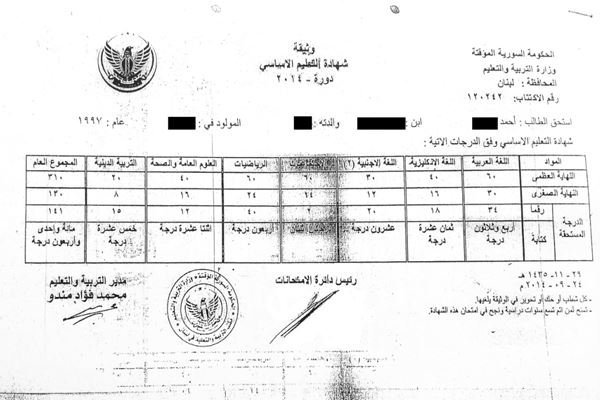 وثيقة
شهادة التعليم الاساسي
دورة - ٢٠١٤
الحكومة السورية المؤقتة
وزارة التربية والتعليم
المحافظة : لبنان
رقم الاكتتاب : ١٢٠٢٤٢
استحق الطالب : أحمد ابن : والدته : المولود في : عام : ١٩٩٧
شهادة التعليم الاساسي وفق الدرجات الاتية :
المواد اللغة العربية اللغة الانكليزية اللغة الاجنبية (٢) الرياضيات العلوم العامة والصحة التربية الدينية المجموع العام
النهاية العظمى ٦٠ ٤٠ ٣٠ ٦٠ ٦٠ ٤٠ ٢٠ ٣١٠
النهاية الصغرى ٣٠ ١٦ ١٢ ٢٤ ٢٤ ١٦ ٨ ١٣٠
الدرجة المستحقة رقما ٣٤ ١٨ ٢٠ ٢ ٤٠ ١٢ ١٥ ١٤١
كتابة أربع وثلاثون درجة ثمان عشرة درجة عشرون درجة أربعون درجة اثنتا عشرة درجة خمس عشرة درجة مائة وإحدى وأربعون درجة
٢٦ - ١١ - ١٤٣٥ هـ
٢٤ - ٠٩ - ٢٠١٤ م
- كل شطب أو حك أو تحوير في الوثيقة يلغيها.
- تمنح لمن اتم تسع سنوات دراسية ونجح في امتحان هذه الشهادة.
رئيس دائرة الامتحانات
مدير التربية والتعليم
محمد فؤاد مندو